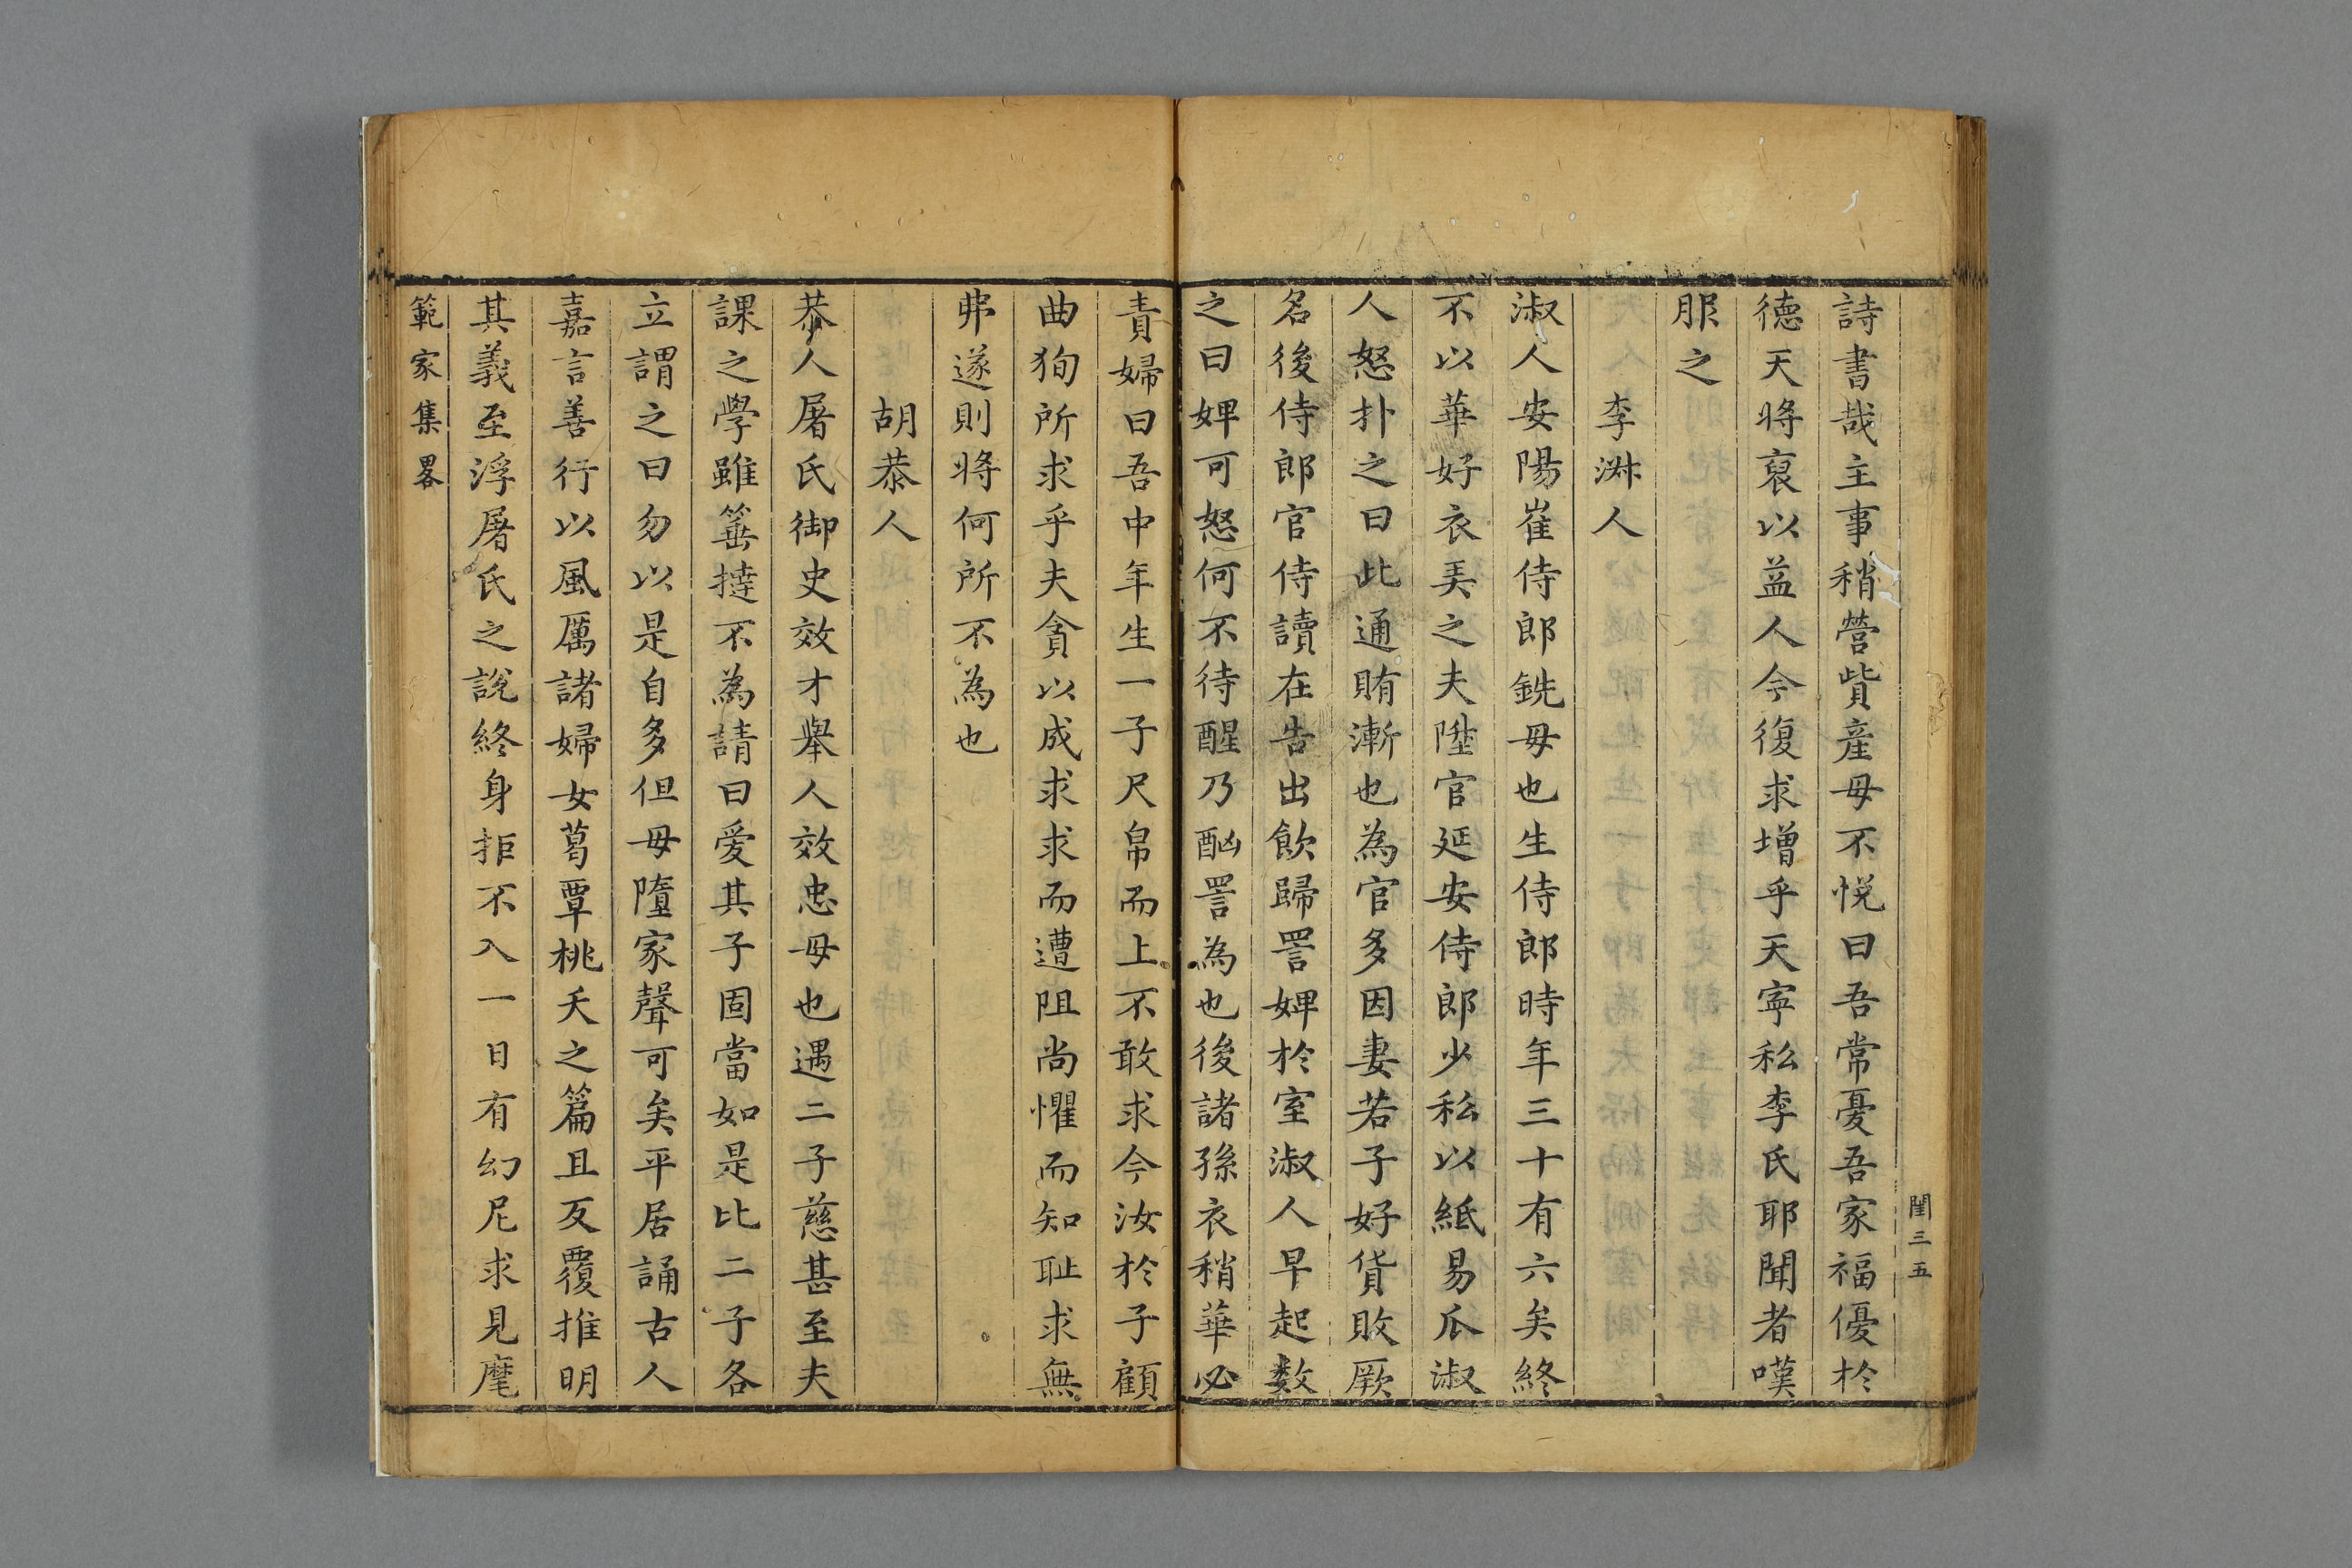 閨三五
詩書哉主事稍營貲産母不悦曰吾常憂吾家福優於
德天將裒以益人今復求增乎天寧私李氏耶聞者嘆
服之
李淑人
淑人安陽崔侍郎銑母也生侍郎時年三十有六矣終
不以華好衣美之夫陞官延安侍郎少私以紙易瓜淑
人怒扑之曰此通賄漸也為官多因妻若子好貨敗厥
名後侍郎官侍讀在告出飲歸詈婢於室淑人早起数
之曰婢可怒何不待醒乃酗詈為也後諸孫衣稍華必
責婦曰吾中年生一子尺帛而上不敢求今汝於子顧
曲狥所求乎夫貪以成求求而遭阻尚懼而知耻求無
弗遂則將何所不為也
胡恭人
恭人屠氏御史效才舉人效忠母也遇二子慈甚至夫
課之學雖箠撻不為請曰愛其子固當如是比二子各
立謂之曰勿以是自多但毋隳家聲可矣平居誦古人
嘉言善行以風厲諸婦女葛覃桃夭之篇且反覆推明
其義至浮屠氏之說終身拒不入一日有幻尼求見麾
範家集畧